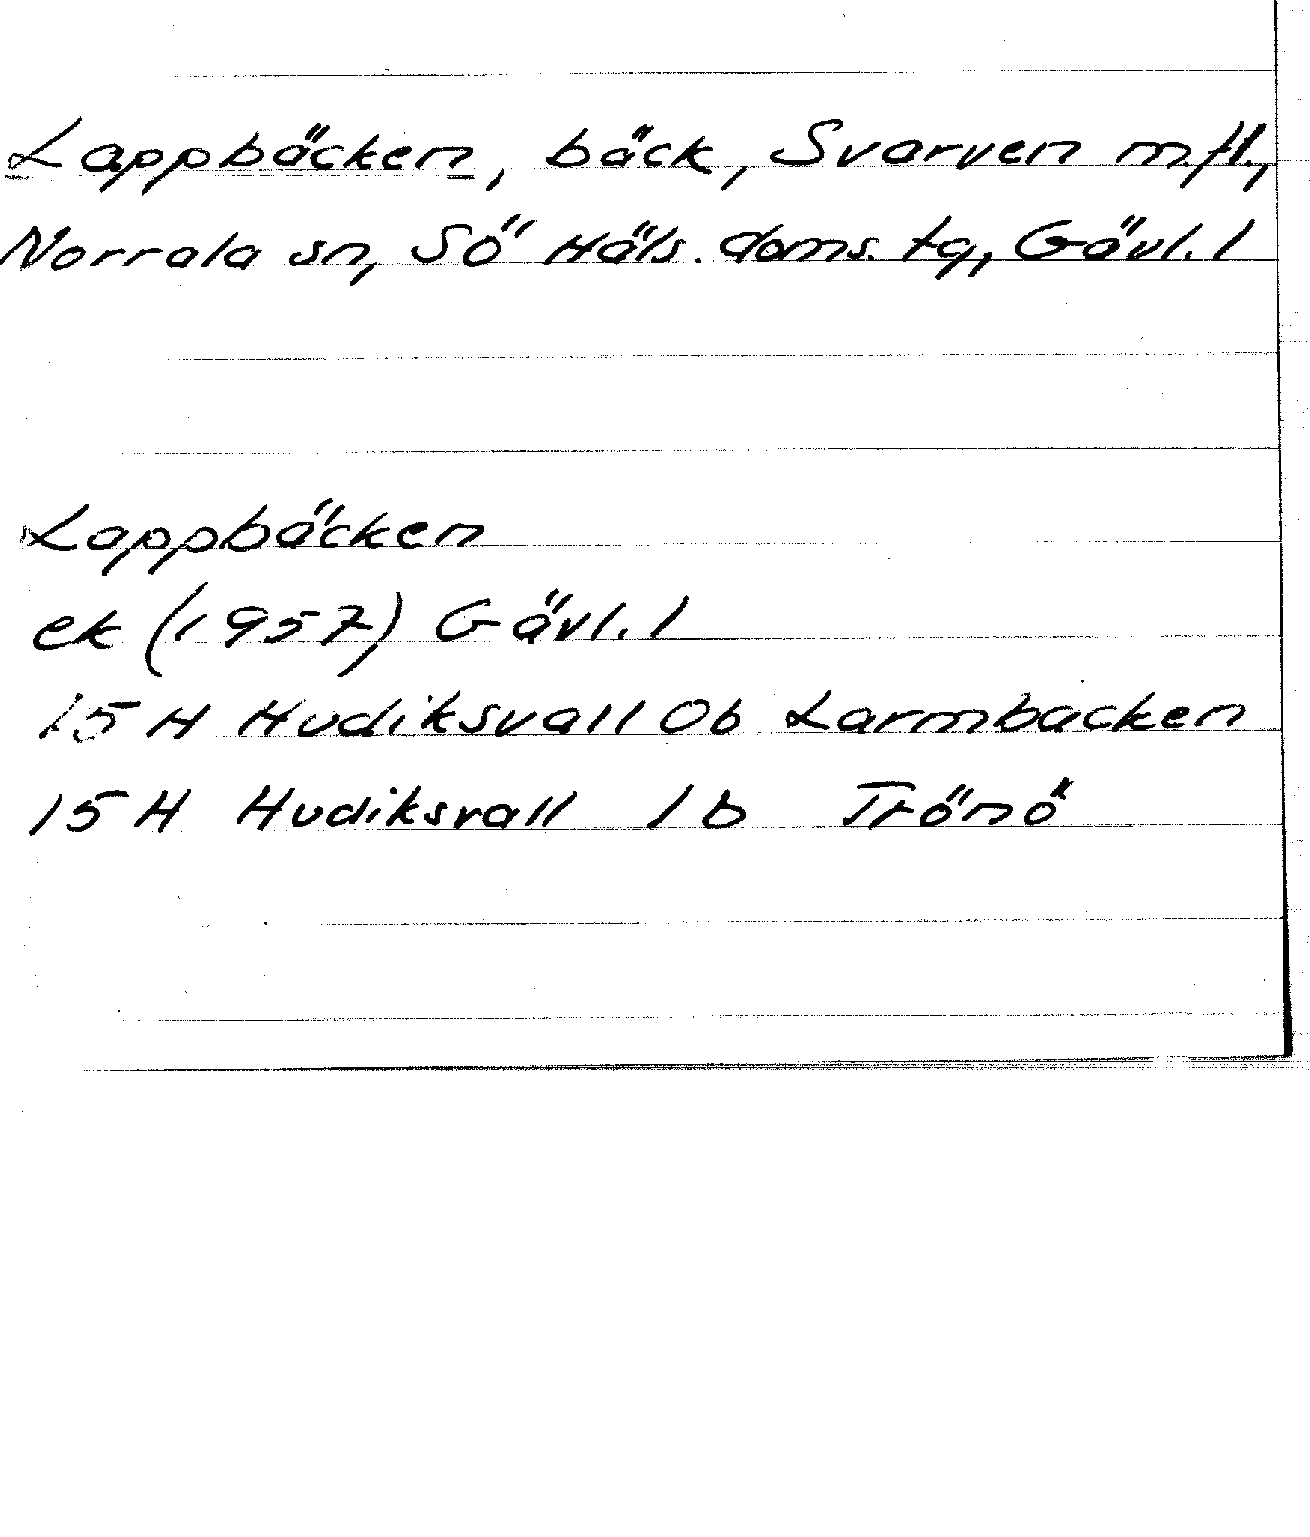 Lappbäcken, bäck, Svarven m.fl.,
Norrala sn, Sö Häls. doms. tg, Gävl. l
Lappbäcken
ek (1957) Gävl. l
15 H Hudiksvall 0b Larmbacken
15 H Hudiksvall 1b Trönö